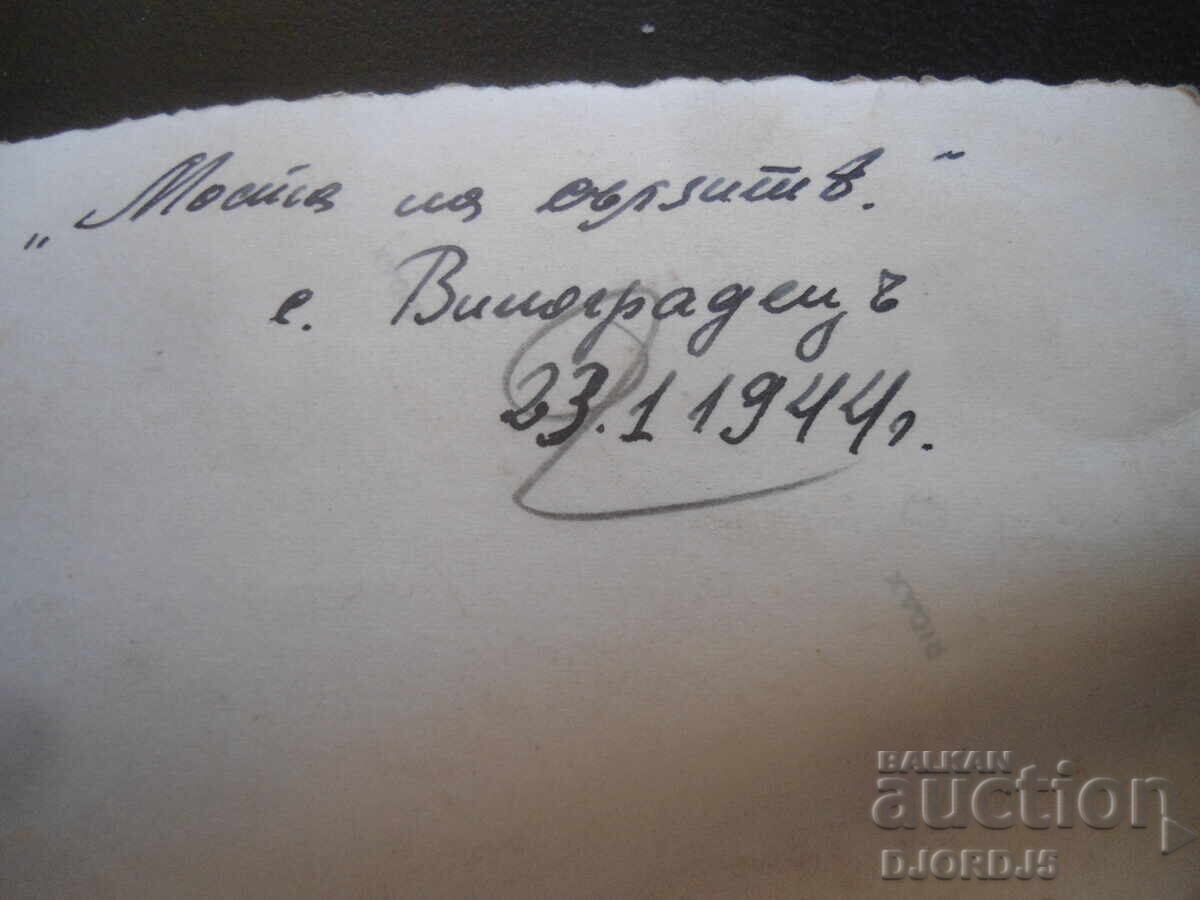 „Моста на сълзитѣ."
с. Виноградецъ
23.1 1944 г.
RIDAX
BALKAN
auction
DJORDJ5